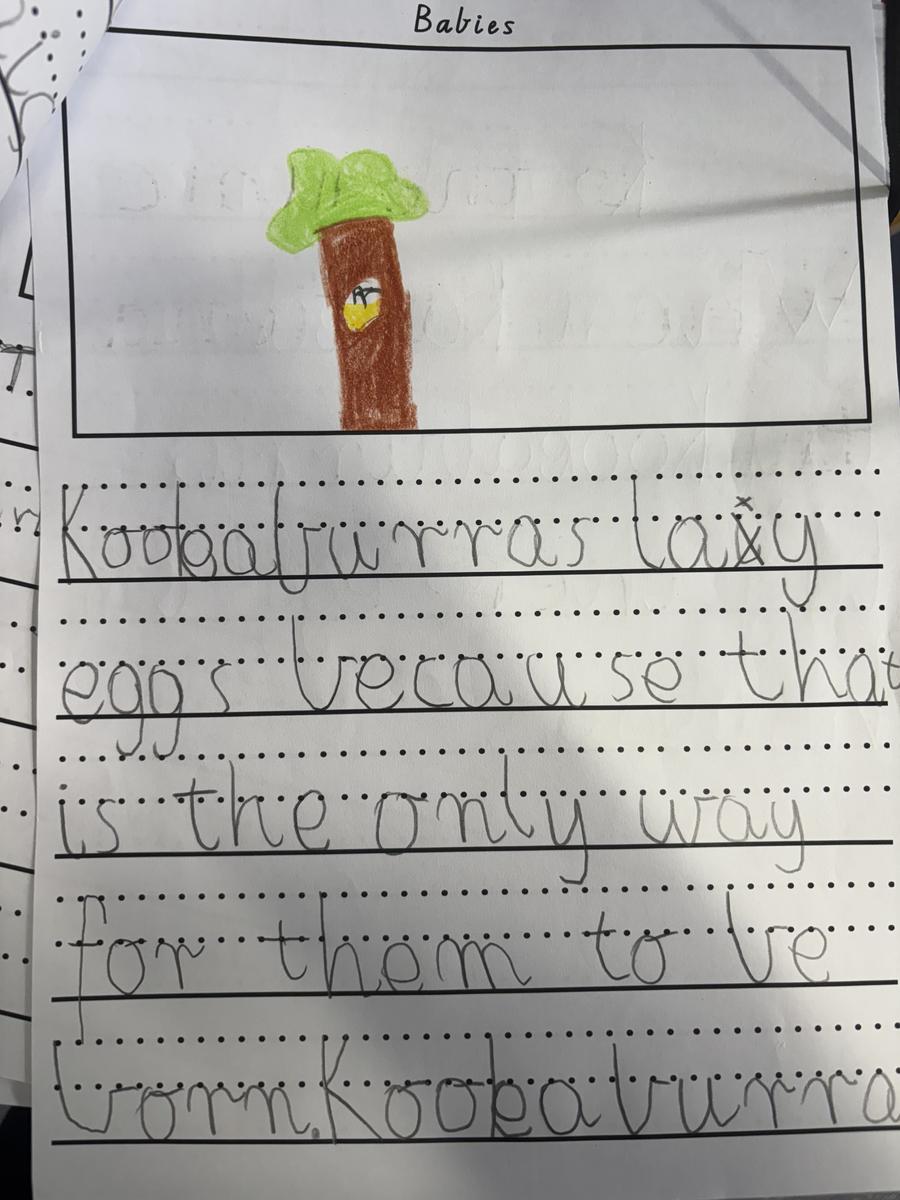 Babies
Kookaburras lay
eggs because that
is the only way
for them to be
born. Kookaburra